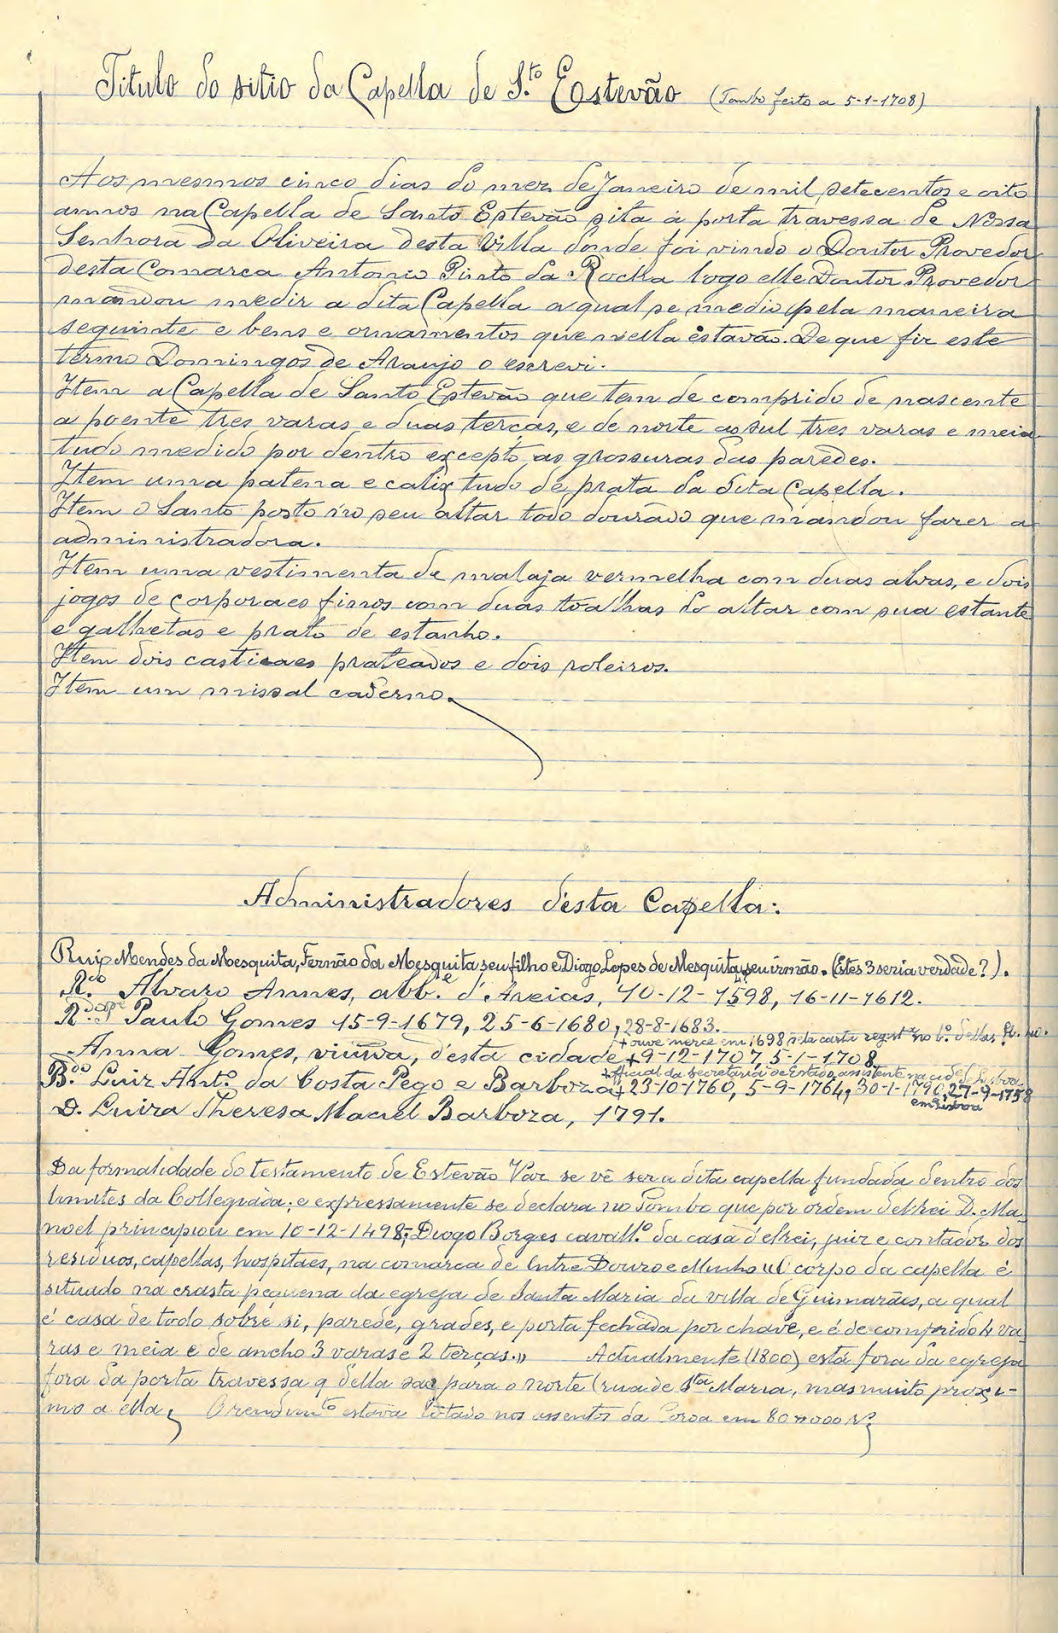 Titulo do sitio da Capella de S.to Estevão (Tombo feito a 5-1-1708)
Aos mesmos cinco dias do mez de Janeiro de mil setecentos e oito
annos na Capella de Santo Estevão sita á porta travessa de Nossa
Senhora da Oliveira desta Villa donde foi vindo o Doutor Provedor
desta Comarca Antonio Pinto da Rocha logo elle Doutor Provedor
mandou medir a dita Capella a qual se medio pela maneira
seguinte e bens e ornamentos que nella estavão. De que fiz este
termo Domingos de Araujo o escrevi.
Item a Capella de Santo Estevão que tem de comprido de nascente
a poente tres varas e duas terças, e de norte ao sul tres varas e meia
tudo medido por dentro excepto as grossuras das paredes.
Item uma patena e calix tudo de prata da dita Capella.
Item o Santo posto no seu altar todo dourado que mandou fazer a
administradora.
Item uma vestimenta de malaja vermelha com duas alvas, e dois
jogos de corporaes finos com duas toalhas do altar com sua estante
e galhetas e prato de estanho.
Item dois casticaes prateados e dois roleiros.
Item um missal caderno.
Administradores d'esta Capella:
Ruip Mendes da Mesquita, Fernão da Mesquita seu filho e Diogo Lopes de Mesquita seu irmão. (Estes 3 seria verdade?).
R.do Alvaro Annes, abb.e d'Areias, 10-12-1598, 16-11-1612.
R.do Paulo Gomes 15-9-1679, 25-6-1680, 28-8-1683.
+ ouve mercê em 1698 pela carta regist.a no l.o dellas
Anna Gomes, viuva, d'esta cidade + 9-12-1707, 5-1-1708
+ official da secretaria de Estado, assistente na cid.e Lisboa
B.do Luiz Ant.o da Costa Pego e Barboza + 23-10-1760, 5-9-1764, 30-1-1790, 27-9-1758
em Lisboa
D. Luiza Theresa Maciel Barboza, 1791.
Da formalidade do testamento de Estevão Vaz se vê ser a dita capella fundada dentro dos
limites da Collegiada; e expressamente se declara no Tombo que por ordem d'elrei D. Ma-
noel principiou em 10-12-1498; Diogo Borges cavall.o da casa d'elrei, juiz e contador dos
residuos, capellas, hospitaes, na comarca de Entre Douro e Minho "O corpo da capella é
situado na crasta pequena da egreja de Santa Maria da villa de Guimarães, a qual
é casa de todo sobre si, parede, grades, e porta fechada por chave, e é de comprido 4 va-
ras e meia e de ancho 3 varas e 2 terças." Actualmente (1800) está fora da egreja
fora da porta travessa q della sae para o norte (rua de S.ta Maria, mas muito proxi-
mo a ella. O rendim.to estava lotado nos assentos da Coroa em 80#000 R.s